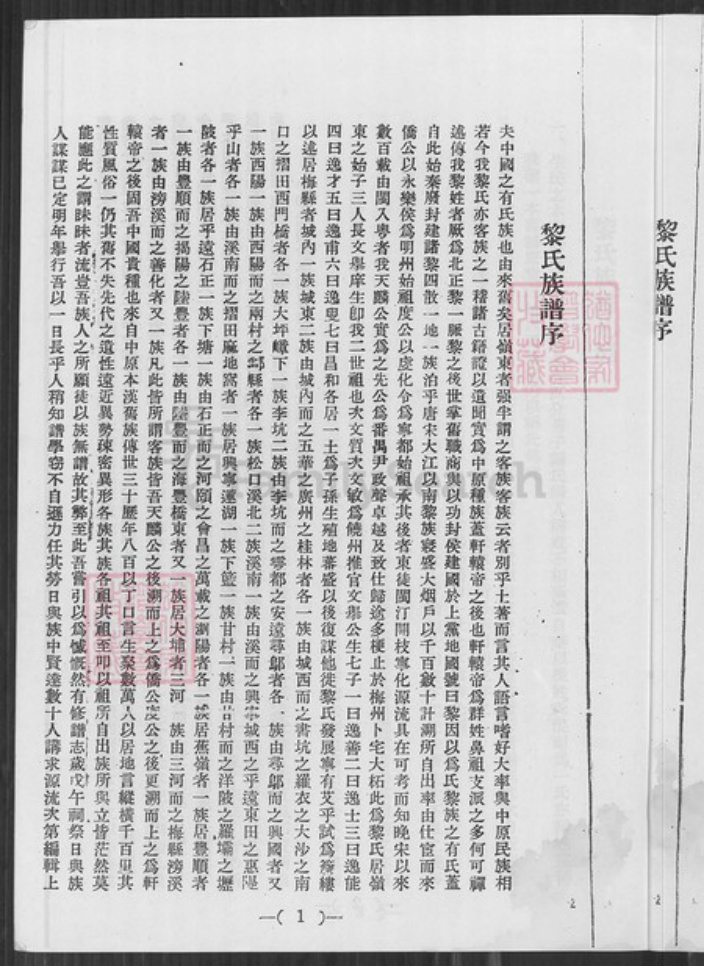 黎氏族譜序
黎氏族譜序
夫中國之有氏族也由來舊矣居嶺東者强半謂之客族客族云者別乎土著而言其人語言嗜好大率與中原民族相
若今我黎氏亦客族之一稽諸古籍證以遺聞實爲中原種族蓋軒轅帝之後也軒轅帝爲群姓鼻祖支派之多何可殫
述傳我黎姓者厥爲北正黎一厥黎之後世掌舊職商與以功封侯建國於上黨地國號曰黎因以爲氏黎族之有氏蓋
自此始秦廢封建諸黎四散一地一族洎乎唐宋大江以南黎族寖盛大烟戶以千百數十計溯所自出率由仕宦而來
僑公以永樂侯爲明州始祖度公以虔化令爲寧都始祖承其後者東徒閩汀開枝寧化源流具在可考而知晚宋以來
數百載由閩入粤者我天麟公實爲之先公爲番禺尹政聲卓越及致仕歸途多梗止於梅州卜宅大柘此爲黎氏居嶺
東之始子三人長文舉庠生卽我二世祖也次文質次文敏爲饒州推官文舉公生七子一曰逸善二曰逸士三曰逸能
四曰逸才五曰逸甫六曰逸叟七曰昌和各居一土爲子孫生殖地蕃盛以後復謀他徙黎氏發展寧有艾乎試爲覼縷
以述居梅縣者城內一族城東二族由城內而之五華之廣州之桂林者各一族由城西而之書坑之羅衣之大沙之南
口之摺田西門橋者各一族大坪嶂下一族李坑二族由李坑而之雩都之安遠尋鄔者各一族由尋鄔而之興國者又
一族西陽一族由西陽而之兩村之鄷縣者各一族松口溪北二族溪南一族由溪而之興寧城西之平遠東田之惠陽
平山者各一族由溪南而之摺田麻地窩者一族居興寧蓮湖一族下籃一族甘村一族由甘村而之洋陂之羅壩之壢
陂者各一族居乎遠石正一族下塘一族由石正而之河頤之會昌之萬載之瀏陽者各一族居蕉嶺者一族居豐順者
一族由豐順而之揭陽之陸豐者各一族由陸豐而之海豐橋東者又一族居大埔者三河一族由三河而之梅縣滂溪
者一族由滂溪而之善化者又一族凡此皆所謂客族皆吾天麟公之後溯而上之爲僑公度公之後更溯而上之爲軒
轅帝之後固吾中國貴種也來自中原本漢舊族傳世三十歷年八百以丁口言生聚數萬人以居地言縱橫千百里其
性質風俗一仍其舊不失先代之遺性遠近異勢疎密異形各族其族各祖其祖至叩以祖所自出族所與立皆茫然莫
能應此之謂昧昧者流豈吾族人之所願徒以族無譜故其弊至此吾嘗引以爲憾慨然有修譜志歲戊午祠祭日與族
人謀謀已定明年舉行吾以一日長乎人稍知譜學窃不自遜力任其勞日與族中賢達數十人講求源流次第編輯上
—( 1 )—
2
2